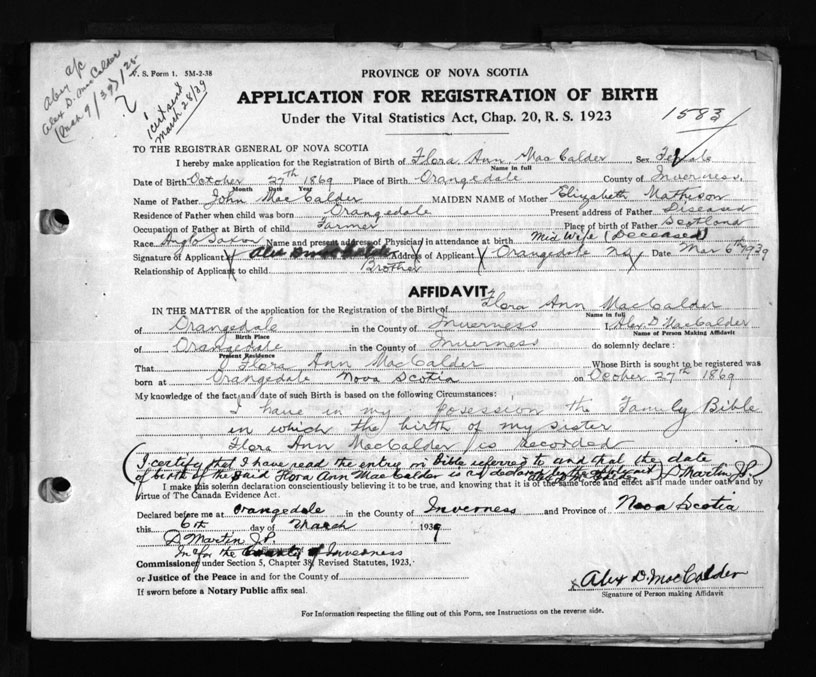 V. S. Form 1. 5M-2-38
Alex D. MacCalder
1 cert sent
March 28/39
PROVINCE OF NOVA SCOTIA
APPLICATION FOR REGISTRATION OF BIRTH
Under the Vital Statistics Act, Chap. 20, R. S. 1923
1583
TO THE REGISTRAR GENERAL OF NOVA SCOTIA
I hereby make application for the Registration of Birth of Flora Ann MacCalder Sex Female
Name in full
Date of Birth October 27th 1869 Place of Birth Orangedale County of Inverness
Month Date Year
Name of Father John MacCalder MAIDEN NAME of Mother Elizabeth Matheson
Residence of Father when child was born Orangedale Present address of Father Diseased
Occupation of Father at Birth of child Farmer Place of birth of Father Scotland
Race Anglo Saxon Name and present address of Physician in attendance at birth Mid Wife (Deceased)
Signature of Applicant X Alex Address of Applicant X Orangedale NS Date Mar 6th 1939
Relationship of Applicant to child Brother
AFFIDAVIT
IN THE MATTER of the application for the Registration of the Birth of Flora Ann MacCalder
Name in full
of Orangedale in the County of Inverness I, Alex. D. MacCalder
Birth Place Name of Person Making Affidavit
of Orangedale in the County of Inverness do solemnly declare:
Present Residence
That Flora Ann MacCalder Whose Birth is sought to be registered was
born at Orangedale Nova Scotia on Ocober 27th 1869
My knowledge of the fact and date of such Birth is based on the following Circumstances:
I have in my posession the Family Bible
in which the birth of my sister
Flora Ann MacCalder is recorded
(I certify that I have read the entry in Bible referred to and that the date
of birth of the said Flora Ann MacCalder is as declared by the applicant D Martin J.P.)
I make this solemn declaration conscientiously believing it to be true, and knowing that it is of the same force and effect as if made under oath and by
virtue of The Canada Evidence Act.
Declared before me at Orangedale in the County of Inverness and Province of Nova Scotia
this 6th day of March 1939
D Martin J.P.
In & for the County of Inverness
Commissioner under Section 5, Chapter 38, Revised Statutes, 1923,
or Justice of the Peace in and for the County of
If sworn before a Notary Public affix seal.
X Alex D. MacCalder
Signature of Person making Affidavit
For Information respecting the filling out of this Form, see Instructions on the reverse side.